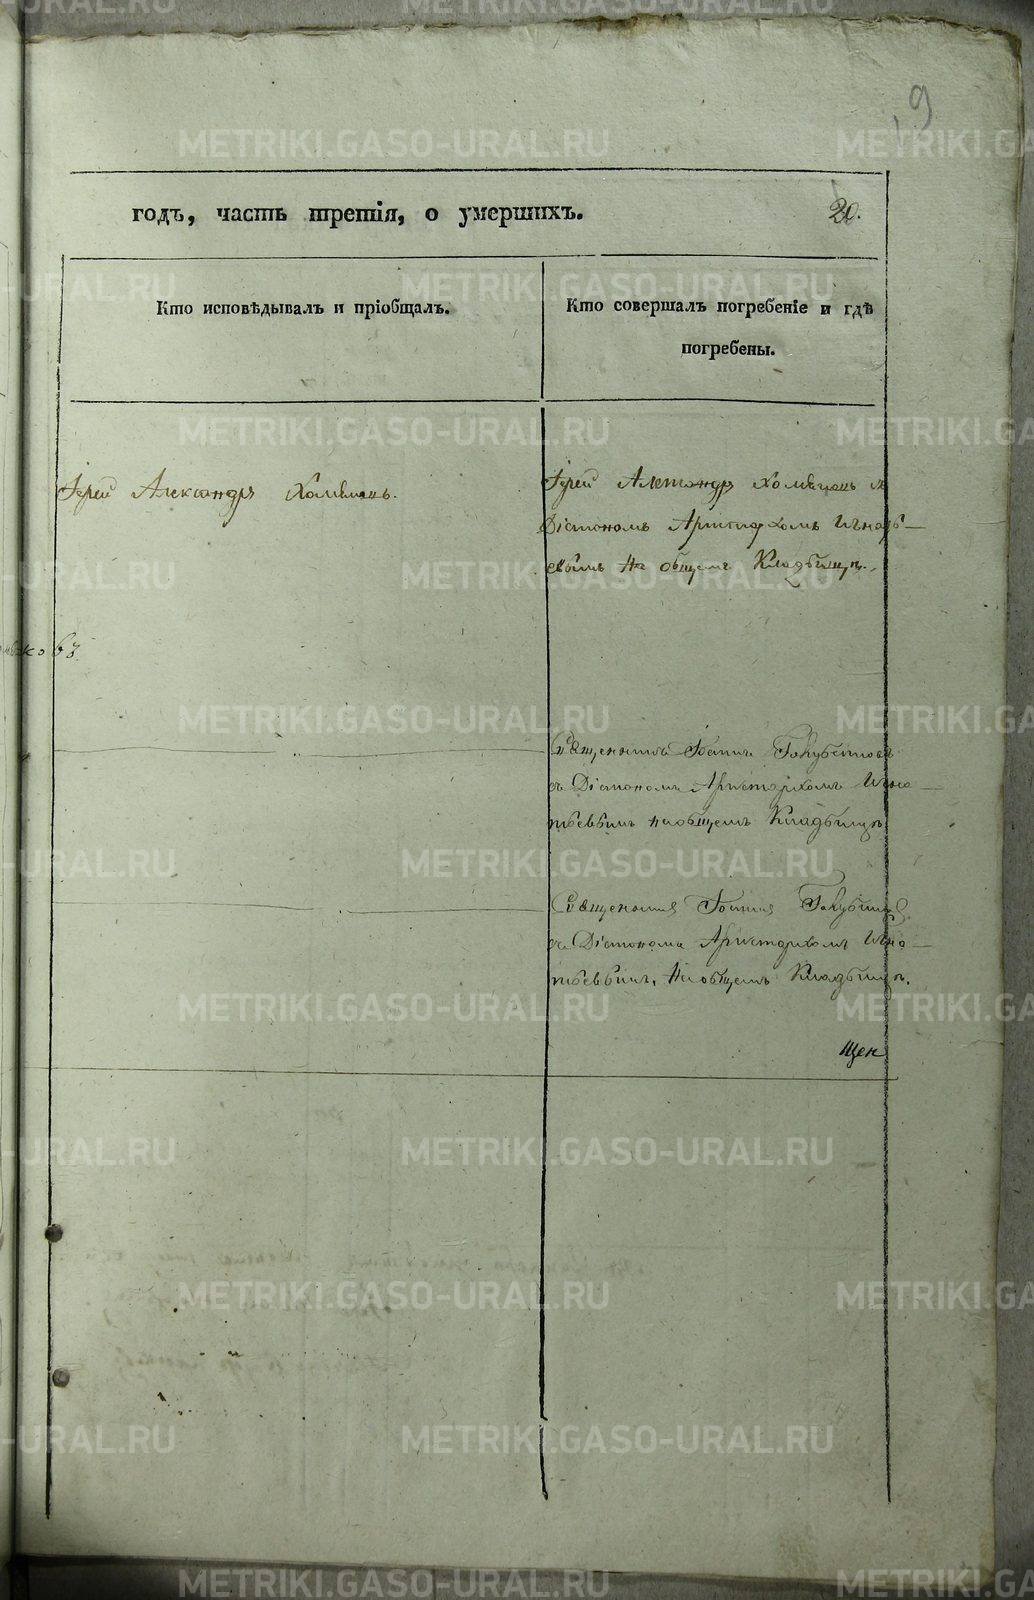 19
годъ, часть третія, о умершихъ.
20.
Кто исповѣдывалъ и пріобщалъ.
Кто совершалъ погребеніе и гдѣ
погребены.
Іерей Александръ
Іерей Александръ съ
Діакономъ Аристархомъ Игнать-
евымъ на общемъ Кладбищѣ.
ковъ
Священникъ Іоаннъ
съ Діакономъ Аристархомъ Игна-
тьевымъ на общемъ Кладбищѣ
Священникъ Іоаннъ
съ Діакономъ Аристархомъ Игна-
тьевымъ, на общемъ Кладбищѣ.
щен
METRIKI.GASO-URAL.RU